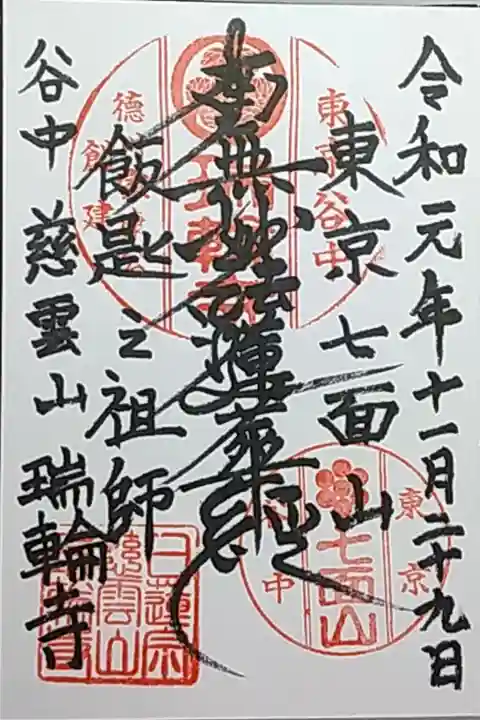 令和元年十一月二十九日
東京七面山
南無妙法蓮華経
飯匙之祖師
谷中慈雲山瑞輪寺
東京谷中
徳
創建
東京
七面山
谷中
日蓮宗
慈雲山
瑞輪寺